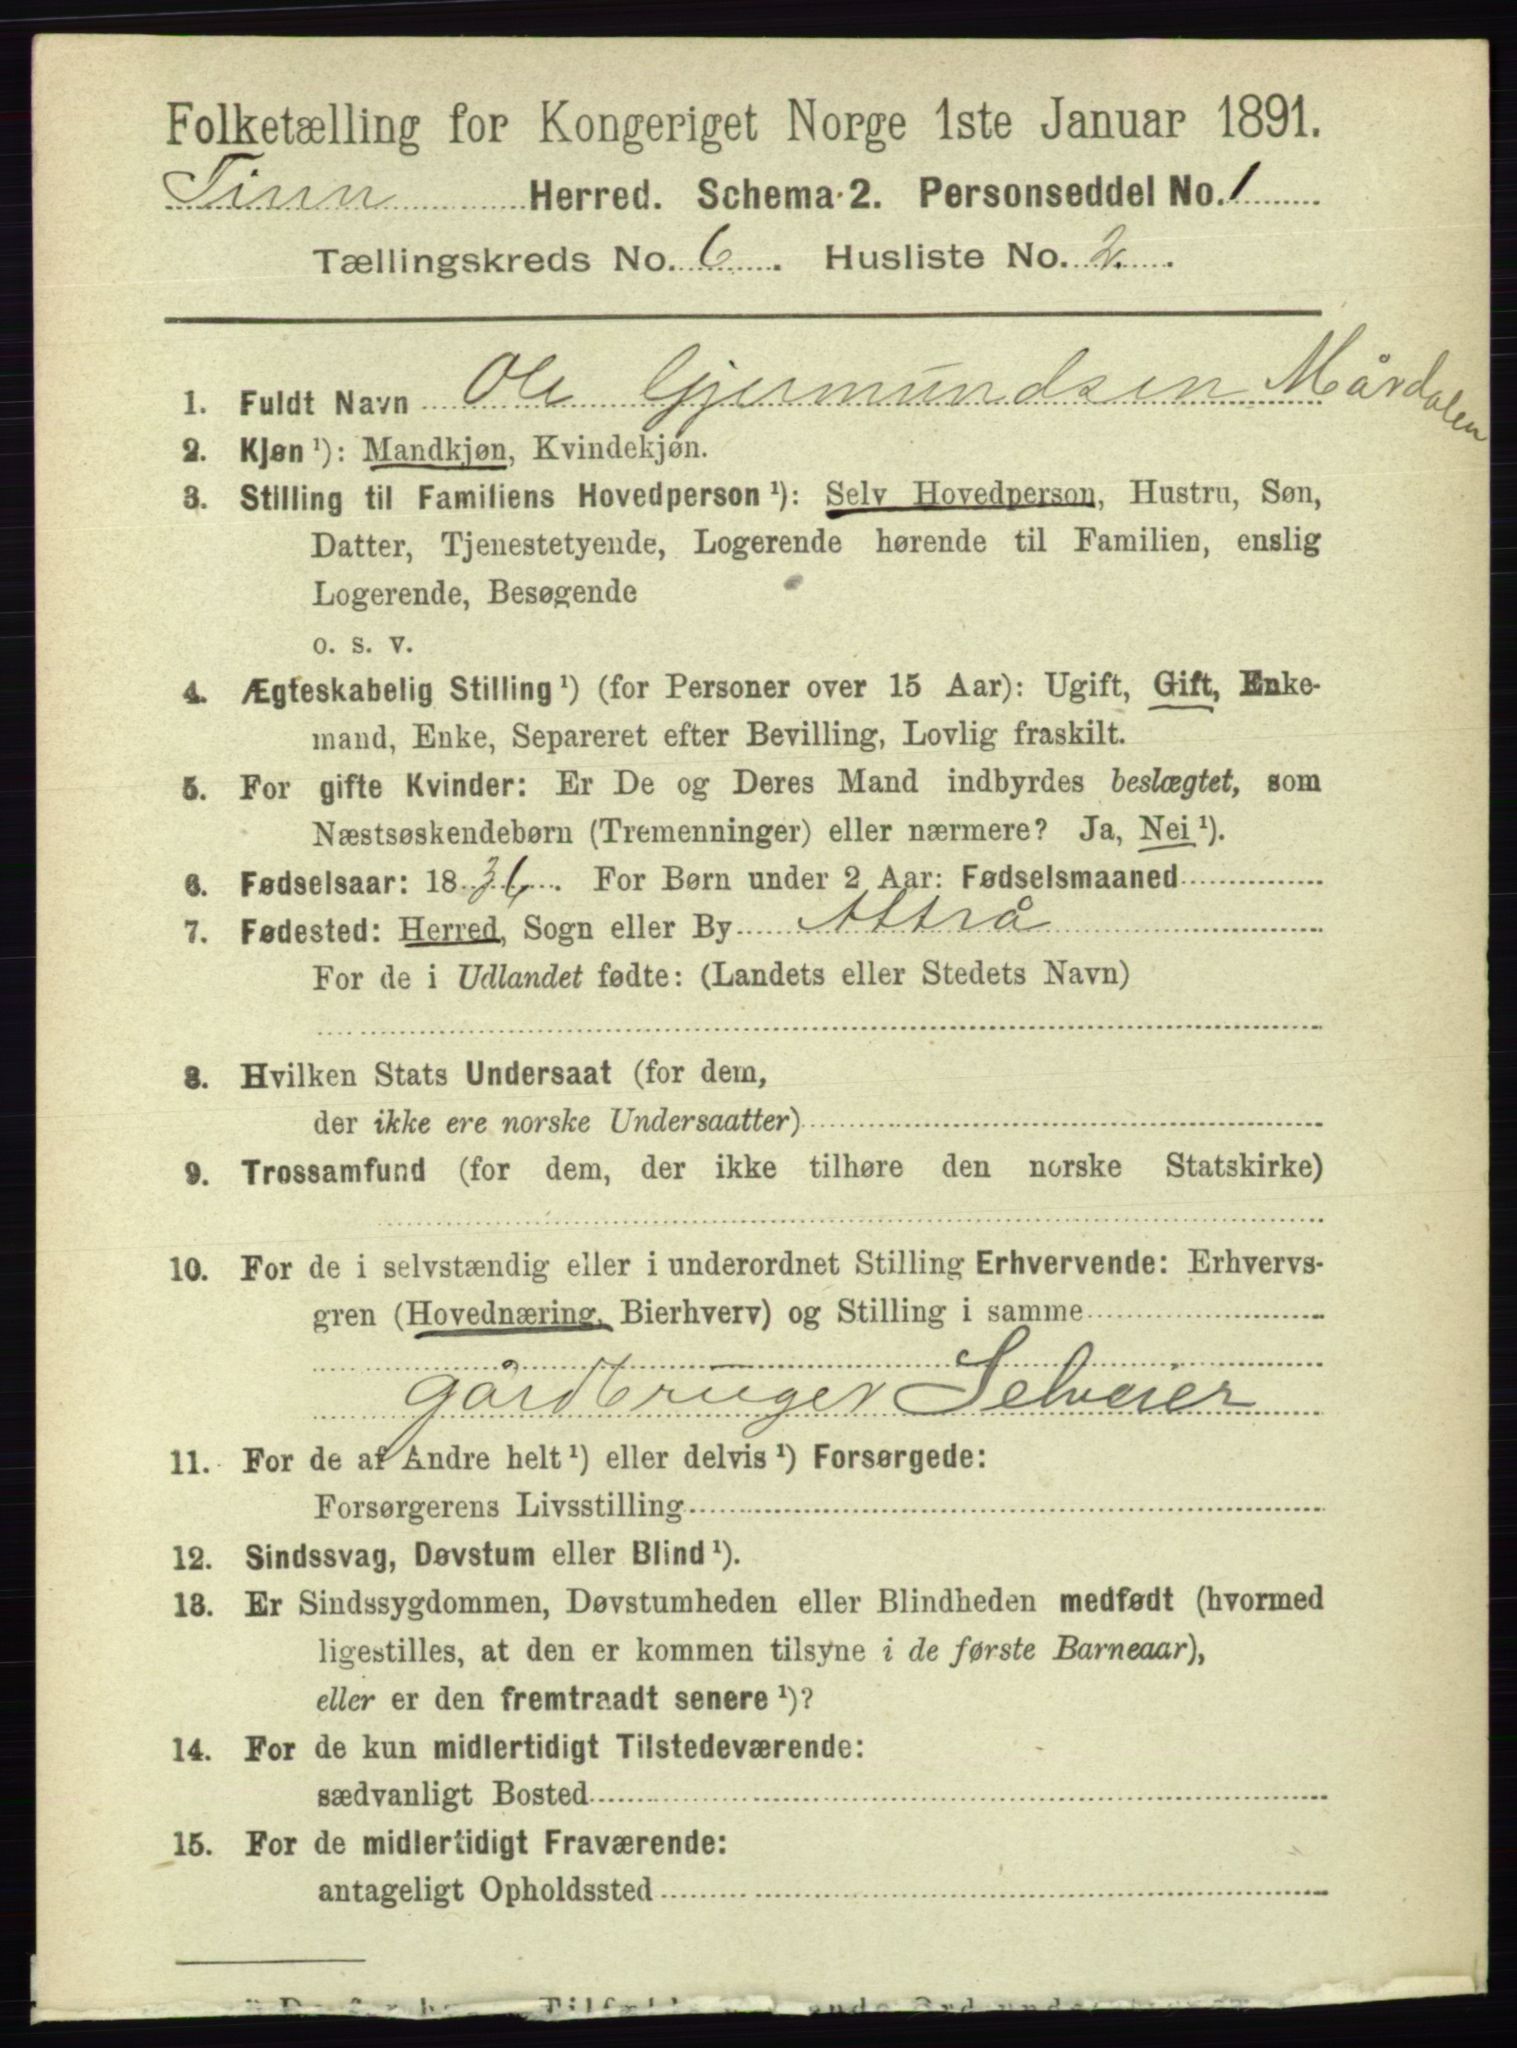 Folketælling for Kongeriget Norge 1ste Januar 1891.
Tinn Herred. Schema 2. Personseddel No. 1
Tællingskreds No. 6. Husliste No. 2.
1. Fuldt Navn Ole Gjermundsen Mårdalen
2. Kjøn ¹): Mandkjøn, Kvindekjøn.
3. Stilling til Familiens Hovedperson ¹): Selv Hovedperson, Hustru, Søn,
Datter, Tjenestetyende, Logerende hørende til Familien, enslig
Logerende, Besøgende
o. s. v.
4. Ægteskabelig Stilling ¹) (for Personer over 15 Aar): Ugift, Gift, Enke-
mand, Enke, Separeret efter Bevilling, Lovlig fraskilt.
5. For gifte Kvinder: Er De og Deres Mand indbyrdes beslægtet, som
Næstsøskendebørn (Tremenninger) eller nærmere? Ja, Nei ¹).
6. Fødselsaar: 1836. For Børn under 2 Aar: Fødselsmaaned
7. Fødested: Herred, Sogn eller By Attrå
For de i Udlandet fødte: (Landets eller Stedets Navn)
8. Hvilken Stats Undersaat (for dem,
der ikke ere norske Undersaatter)
9. Trossamfund (for dem, der ikke tilhøre den norske Statskirke)
10. For de i selvstændig eller i underordnet Stilling Erhvervende: Erhvervs-
gren (Hovednæring, Bierhverv) og Stilling i samme
gårdbruger Selveier
11. For de af Andre helt ¹) eller delvis ¹) Forsørgede:
Forsørgerens Livsstilling
12. Sindssvag, Døvstum eller Blind ¹).
13. Er Sindssygdommen, Døvstumheden eller Blindheden medfødt (hvormed
ligestilles, at den er kommen tilsyne i de første Barneaar),
eller er den fremtraadt senere ¹)?
14. For de kun midlertidigt Tilstedeværende:
sædvanligt Bosted
15. For de midlertidigt Fraværende:
antageligt Opholdssted